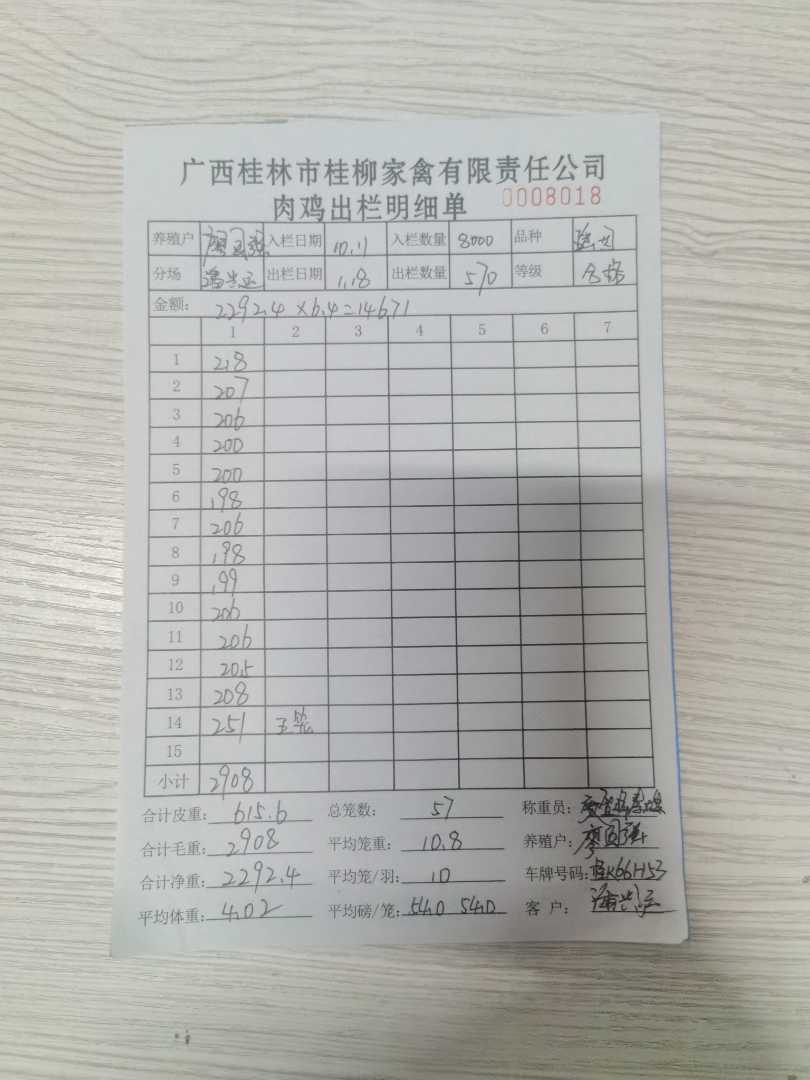 广西桂林市桂柳家禽有限责任公司
肉鸡出栏明细单 0008018
养殖户 廖国强 入栏日期 10.11 入栏数量 8000 品种
分场 潘兴运 出栏日期 1.18 出栏数量 570 等级 合格
金额: 2292.4×6.4=14671
1 2 3 4 5 6 7
1 218
2 207
3 206
4 200
5 200
6 198
7 206
8 198
9 199
10 206
11 206
12 205
13 208
14 251
15
小计 2908
合计皮重: 615.6 总笼数: 57 称重员:
合计毛重: 2908 平均笼重: 10.8 养殖户: 廖国强
合计净重: 2292.4 平均笼/羽: 10 车牌号码: 桂K66H53
平均体重: 4.02 平均磅/笼: 54.0 54.0 客户: 潘兴运